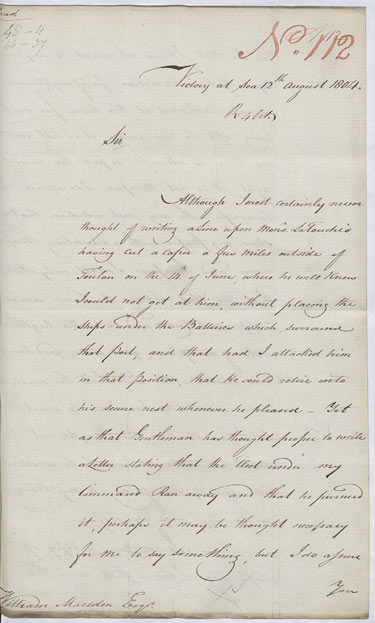 48 - 4
N.º 112
Victory at Sea 12th August 1804.
R 4 Oct.
Sir
Although I most certainly never
thought of writing a Line upon Mons. LaTouche's
having cut a Caper a few Miles outside of
Toulon on the 14 of June, where he well knew
I could not get at him, without placing the
Ships under the Batteries which surround
that Port, and that had I attacked him
in that Position, that He could retire into
his secure nest whenever he pleased – Yet
as that Gentleman has thought proper to write
a Letter stating that the Fleet under my
Command Ran away and that he pursued
it, perhaps it may be thought necessary
for me to say something, but I do assure
You
William Marsden Esqr.